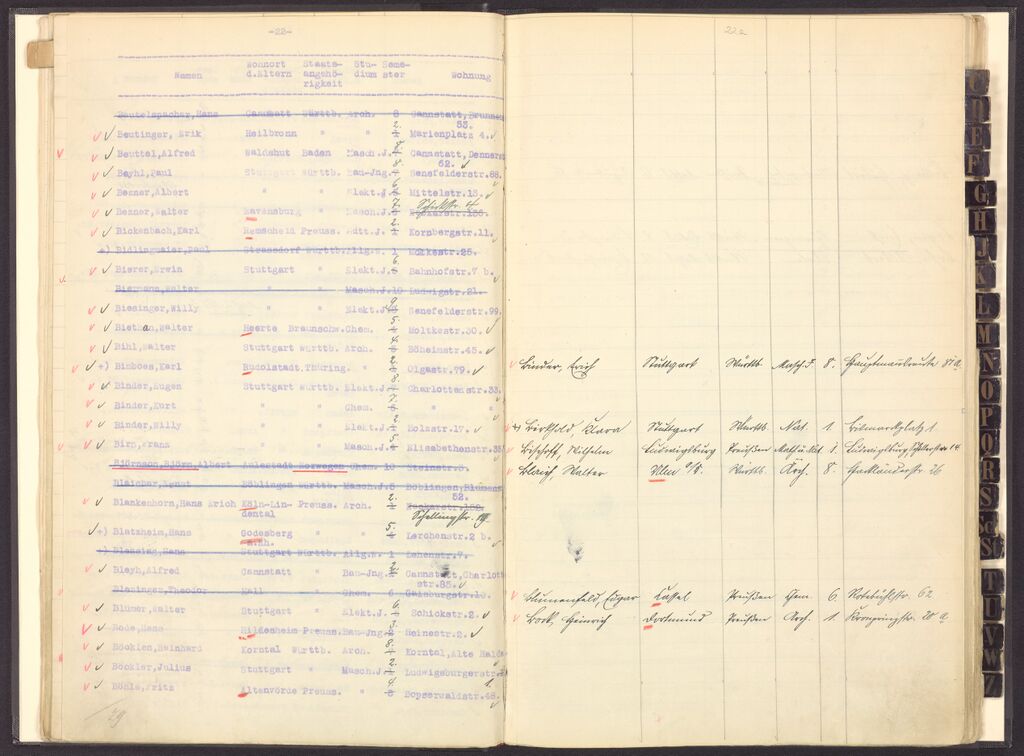 -22-
Namen Wohnort d.Eltern Staats-angehö-rigkeit Stu-dium Seme-ster Wohnung
Beutelspacher, Hans Cannstatt Württb. Arch. 8 Cannstatt, Brunnen
53.
Beutinger, Erik Heilbronn " " 2. Marienplatz 4.
Beuttel, Alfred Waldshut Baden Masch.J. Cannstatt, Denners
52.
Beyhl, Paul Stuttgart Württb. Bau-Jng. 8. Senefelderstr.88.
Bezner, Albert " " Elekt.J. 6. Mittelstr.13.
7.
Bezner, Walter Ravensburg " Masch.J.
Bickenbach, Karl Remscheid Preuss. J. 2. Kornbergstr.11.
+) Bidlingmaier, Paul Strassdorf Württb. Allg. 1 Moltkestr.25.
Bierer, Erwin Stuttgart " Elekt.J. 6. Bahnhofstr.7 b.
Biermann, Walter " " Masch.J. 10 Ludwigstr.21.
Biesinger, Willy " " Elekt.J. 9 Senefelderstr.99.
Bietman, Walter Heerte Braunschw. Chem. 5. Moltkestr.30.
Bihl, Walter Stuttgart Württb. Arch. 4. Böheimstr.45.
+) Bimboes, Karl Rudolstadt, Thüring. " 2. Olgastr.79.
Binder, Eugen Stuttgart Württb. Elekt.J. 8. Charlottenstr.33.
Binder, Kurt " " Chem. 7. " "
Binder, Willy " " Elekt.J. 2. Holzstr.17.
Birn, Franz " " Masch.J. 5. Elisabethenstr.35
Björnson, Björn Albert Norwegen Chem. 10 Steinstr.
Blaicher, August Böblingen Württb. Masch.J. 5 Böblingen,
52.
Blankenhorn, Hans Erich Köln-Lin- Preuss. Arch. 2.
dental Schellingstr. 19
+) Blatzheim, Hans Godesberg " " 5. Lerchenstr.2 b.
a.Rh.
+) Blessing, Hans Stuttgart Württb. Allg. 1 Lehenstr.7.
Bleyh, Alfred Cannstatt " Bau-Jng. 2. Cannstatt, Charlott
str.85.
Bleninger, Theodor Hall " Chem. 6 Gaisburgstr.10.
Blümer, Walter Stuttgart " Elekt.J. 6. Schickstr.2.
Bode, Hans Hildenheim Preuss. Bau-Jng. 3. Heinestr.2.
Böcklen, Reinhard Korntal Württb. Arch. 8. Korntal, Alte Halde
Böckler, Julius Stuttgart " Masch.J. 2. Ludwigsburgerstr.
Böhle, Fritz Altenvörde Preuss. " 4. Hopserwaldstr.48.
29
22a
Binder, Erich Stuttgart Württb. Masch. J. 8. Hauptmannsreute 81a
+) Birkhold, Klara Stuttgart Württb. Nat. 1 Bismarckplatz 1
Bischoff, Wilhelm Ludwigsburg Preußen Math. u. Nat. 1. Ludwigsburg, 14
Blaich, Walter Ulm a/D. Württb. Arch. 8.
Blumenfeld, Edgar Cassel Preußen Chem. 6. Rotebühlstr. 62
Bock, Heinrich Dortmund Preußen Arch. 1. Kronprinzstr. 20 a
C
D
E
F
G
H
J
K
L
M
N
O
P
Q
R
S
Sch
St
T
U
V
W
Z